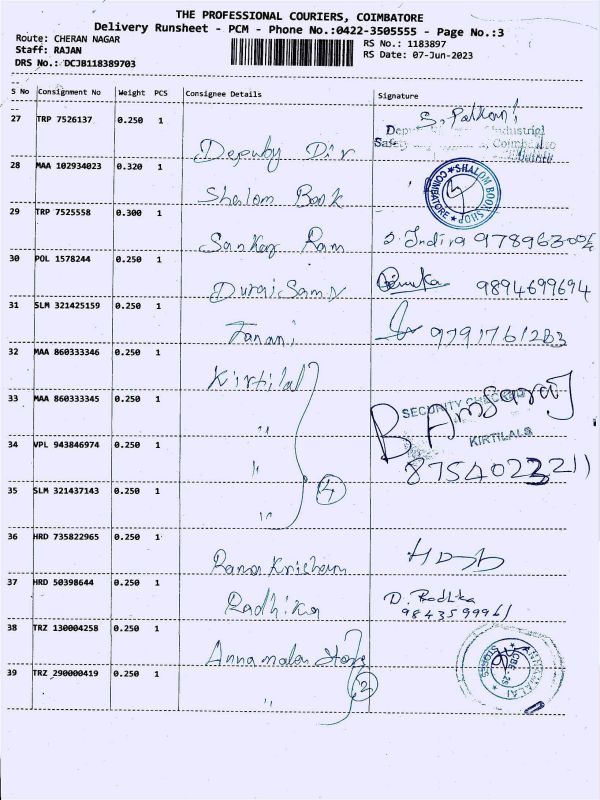 THE PROFESSIONAL COURIERS, COIMBATORE
Delivery Runsheet - PCM - Phone No.:0422-3505555 - Page No.:3
Route: CHERAN NAGAR
RS No.: 1183897
Staff: RAJAN
RS Date: 07-Jun-2023
DRS No.: DCJB118389703
S No Consignment No Weight PCS Consignee Details Signature
27 TRP 7526137 0.250 1 Deputy Dir
Industrial
Safety Coimbatore
28 MAA 102934023 0.320 1 Shalom Book SHALOM BOOK SHOP * COIMBATORE *
29 TRP 7525558 0.300 1 Sankar Ram S. Indira
30 POL 1578244 0.250 1 Duraisamy 9894699694
31 SLM 321425159 0.250 1 Janani 9791761283
32 MAA 860333346 0.250 1 Kirtilal
33 MAA 860333345 0.250 1 "
SECURITY CHECKED
KIRTILALS
34 VPL 943846974 0.250 1 "
35 SLM 321437143 0.250 1 " 4
36 HRD 735822965 0.250 1
37 HRD 50398644 0.250 1 Radhika D. Radhika
9843599961
38 TRZ 130004258 0.250 1 Annamalai Store
39 TRZ 290000419 0.250 1 " 2